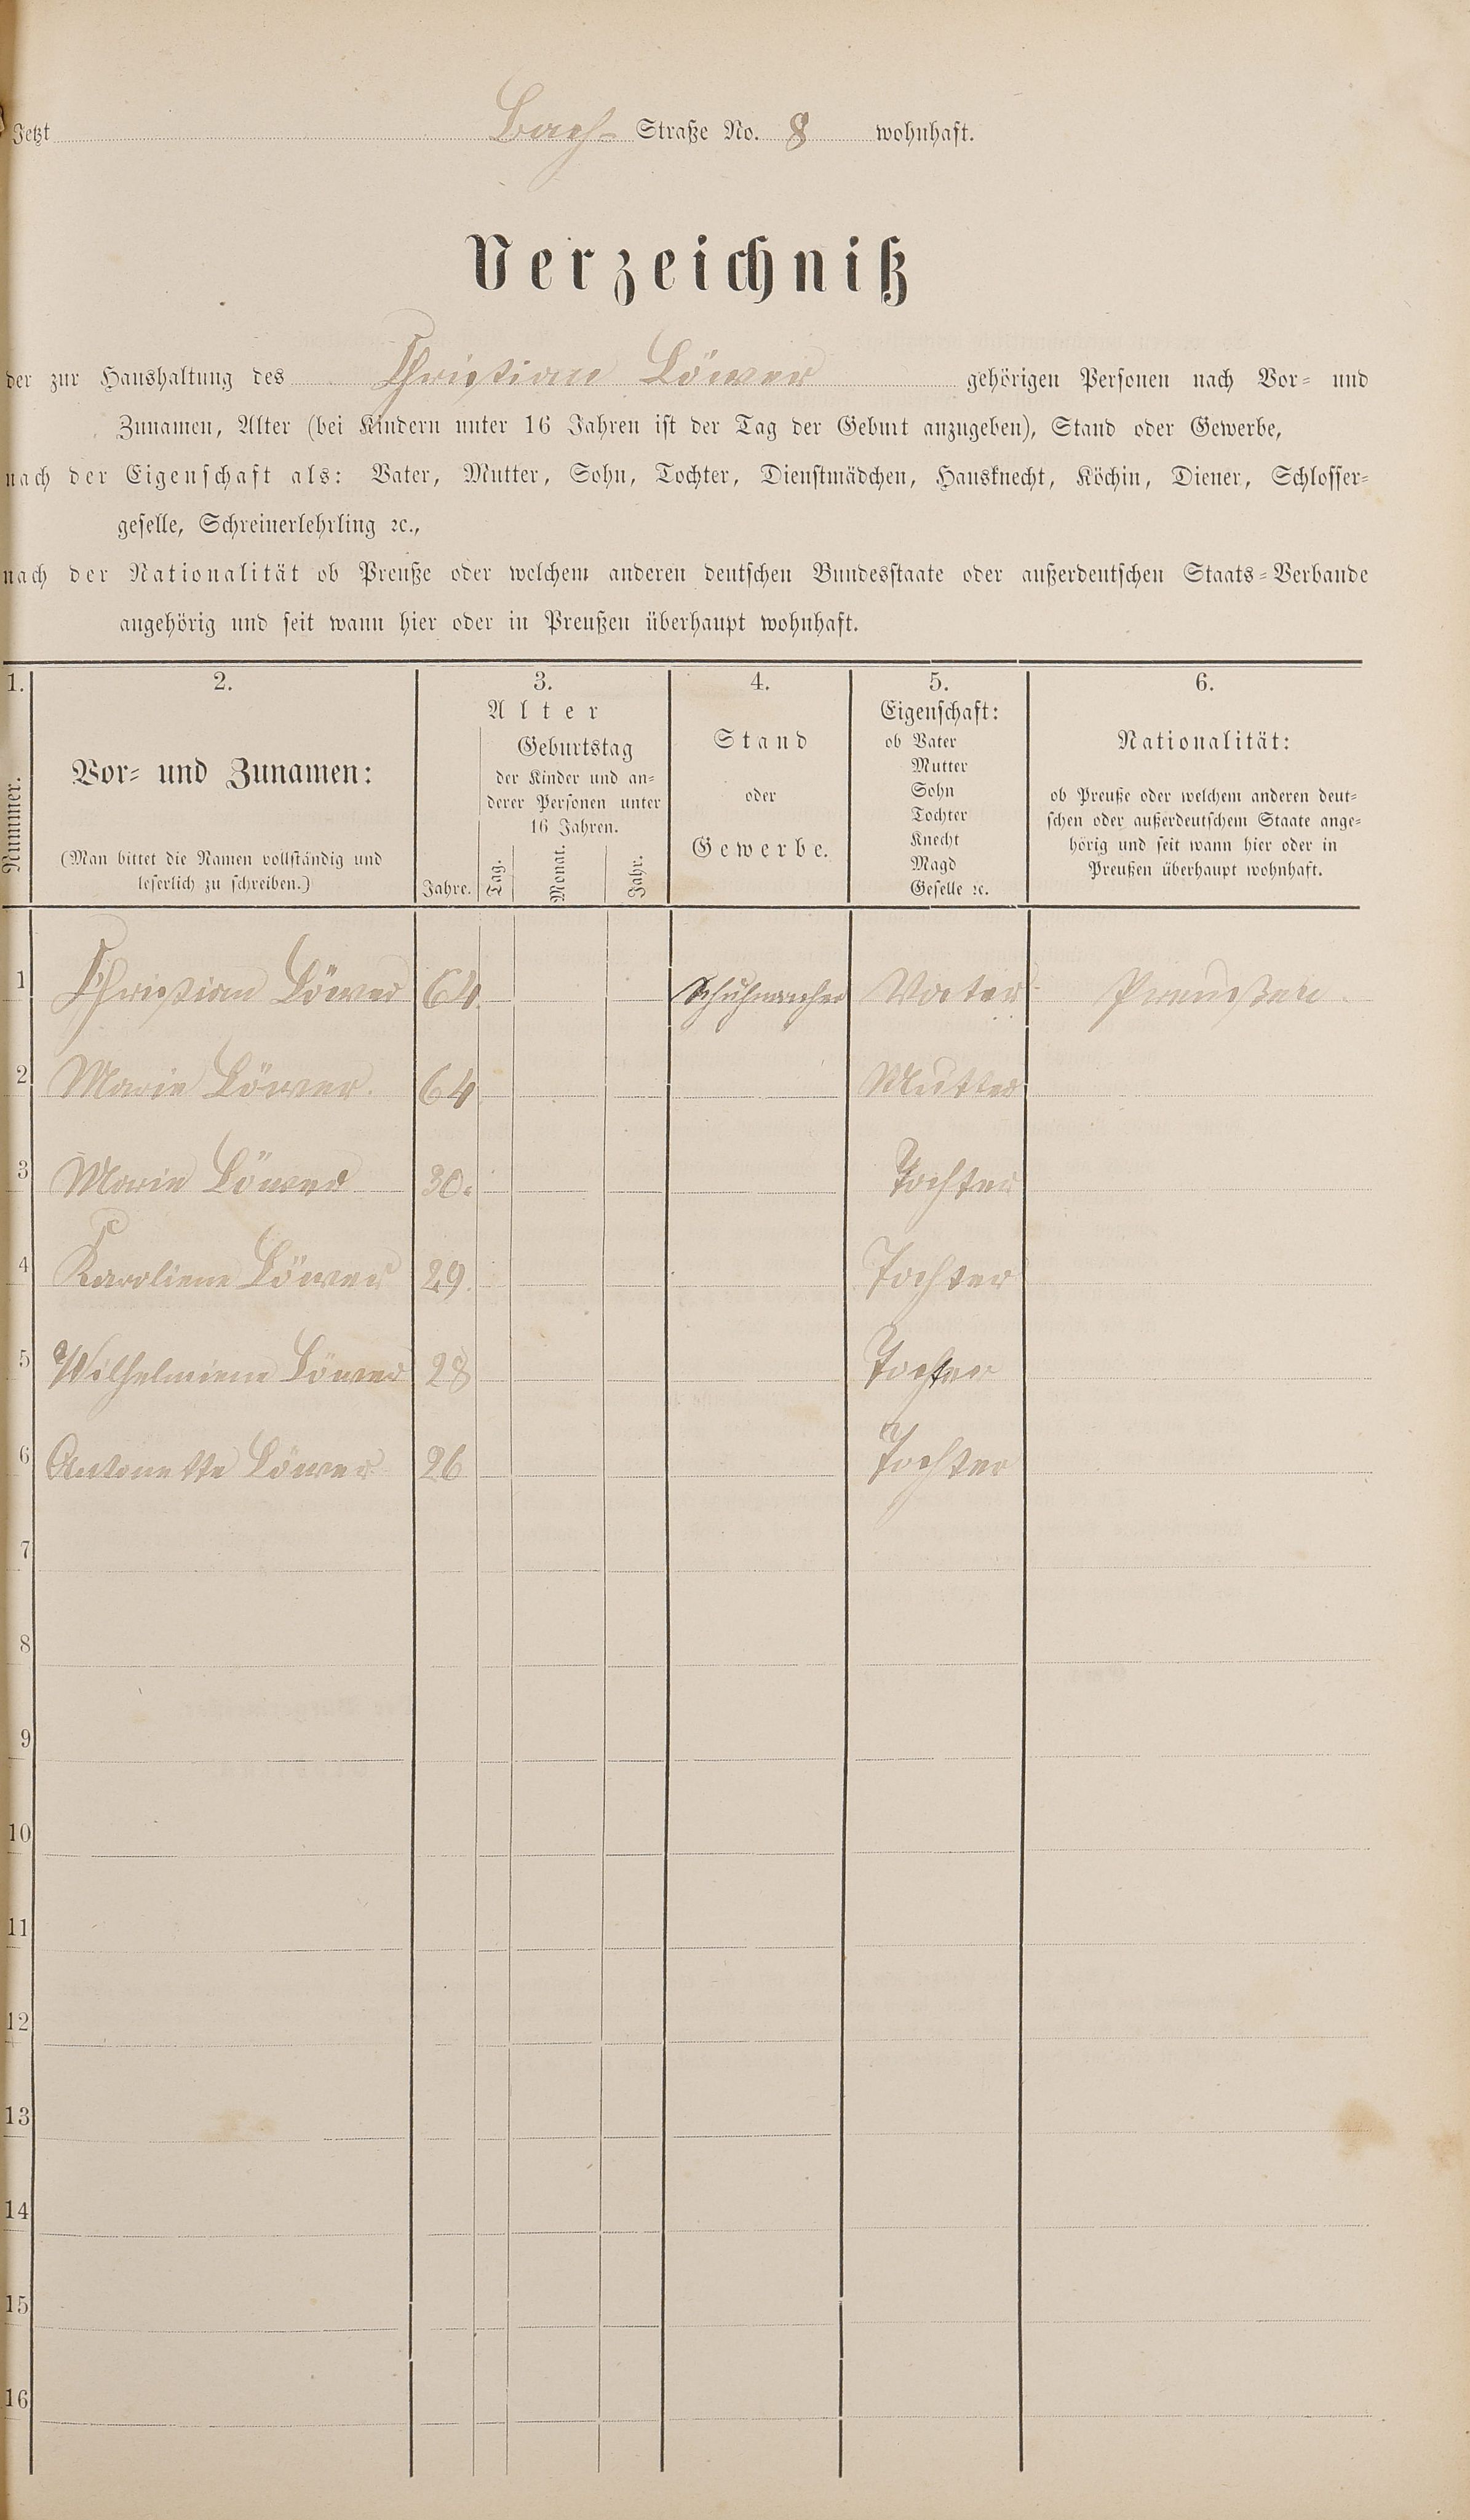 Jetzt Bach- Straße No. 8 wohnhaft.
Verzeichniß
der zur Haushaltung des Christian Löwer gehörigen Personen nach Vor- und
Zunamen, Alter (bei Kindern unter 16 Jahren ist der Tag der Geburt anzugeben), Stand oder Gewerbe,
nach der Eigenschaft als: Vater, Mutter, Sohn, Tochter, Dienstmädchen, Hausknecht, Köchin, Diener, Schlosser-
geselle, Schreinerlehrling ꝛc.,
nach der Nationalität ob Preuße oder welchem anderen deutschen Bundesstaate oder außerdeutschen Staats-Verbande
angehörig und seit wann hier oder in Preußen überhaupt wohnhaft.
1. 2. 3. 4. 5. 6.
Nummer.
Vor- und Zunamen:
(Man bittet die Namen vollständig und
leserlich zu schreiben.)
Alter
Geburtstag
der Kinder und an-
derer Personen unter
16 Jahren.
Jahre. Tag. Monat. Jahr.
Stand
oder
Gewerbe.
Eigenschaft:
ob Vater
Mutter
Sohn
Tochter
Knecht
Magd
Geselle ꝛc.
Nationalität:
ob Preuße oder welchem anderen deut-
schen oder außerdeutschem Staate ange-
hörig und seit wann hier oder in
Preußen überhaupt wohnhaft.
1 Christian Löwer 64. Schuhmacher Vater Preußen.
2 Marie Löwer. 64 Mutter
3 Marie Löwer 30. Tochter
4 Karoliene Löwer 29. Tochter
5 Wilhelmiene Löwer 28 Tochter
6 Antonette Löwer 26 Tochter
7
8
9
10
11
12
13
14
15
16